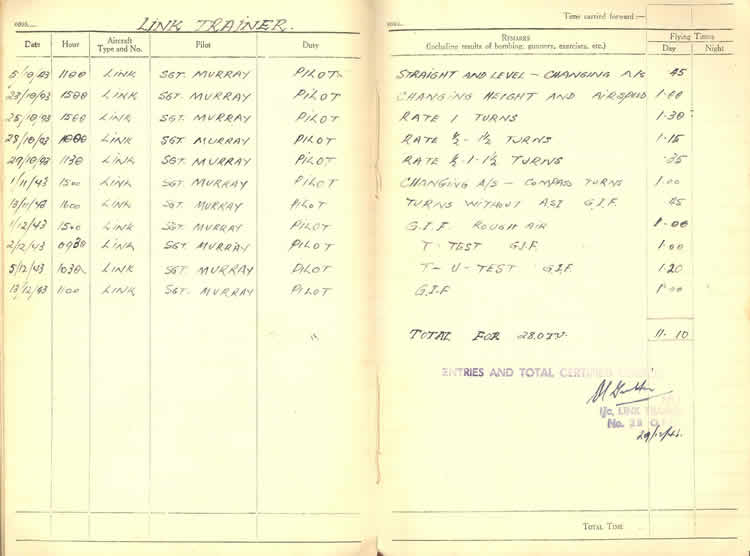 LINK TRAINER.
Time carried forward:—
Date Hour Aircraft Type and No. Pilot Duty Remarks (including results of bombing, gunnery, exercises, etc.) Flying Times Day Night
5/10/43 1100 LINK SGT. MURRAY PILOT STRAIGHT AND LEVEL – CHANGING A/S 45
23/10/43 1500 LINK SGT. MURRAY PILOT CHANGING HEIGHT AND AIRSPEED 1.00
25/10/43 1500 LINK SGT. MURRAY PILOT RATE 1 TURNS 1.30
28/10/43 LINK SGT MURRAY PILOT RATE ½ – 1½ TURNS 1.15
29/10/43 1130 LINK SGT MURRAY PILOT RATE ½ - 1 - 1½ TURNS
1/11/43 1500 LINK SGT. MURRAY PILOT CHANGING A/S – COMPASS TURNS 1.00
13/11/43 1600 LINK SGT. MURRAY PILOT TURNS WITHOUT ASI G.I.F. 45
1/12/43 1500 LINK SGT MURRAY PILOT G.I.F. ROUGH AIR 1.00
2/12/43 0930 LINK SGT. MURRAY PILOT T – TEST G.I.F. 1.00
5/12/43 1030 LINK SGT MURRAY PILOT T – U – TEST G.I.F. 1.20
13/12/43 1100 LINK SGT. MURRAY PILOT G.I.F 1.00
TOTAL FOR 28.O.T.U. 11.10
ENTRIES AND TOTAL CERTIFIED
I/c, LINK
No. 28 O.
29/12/43.
Total Time